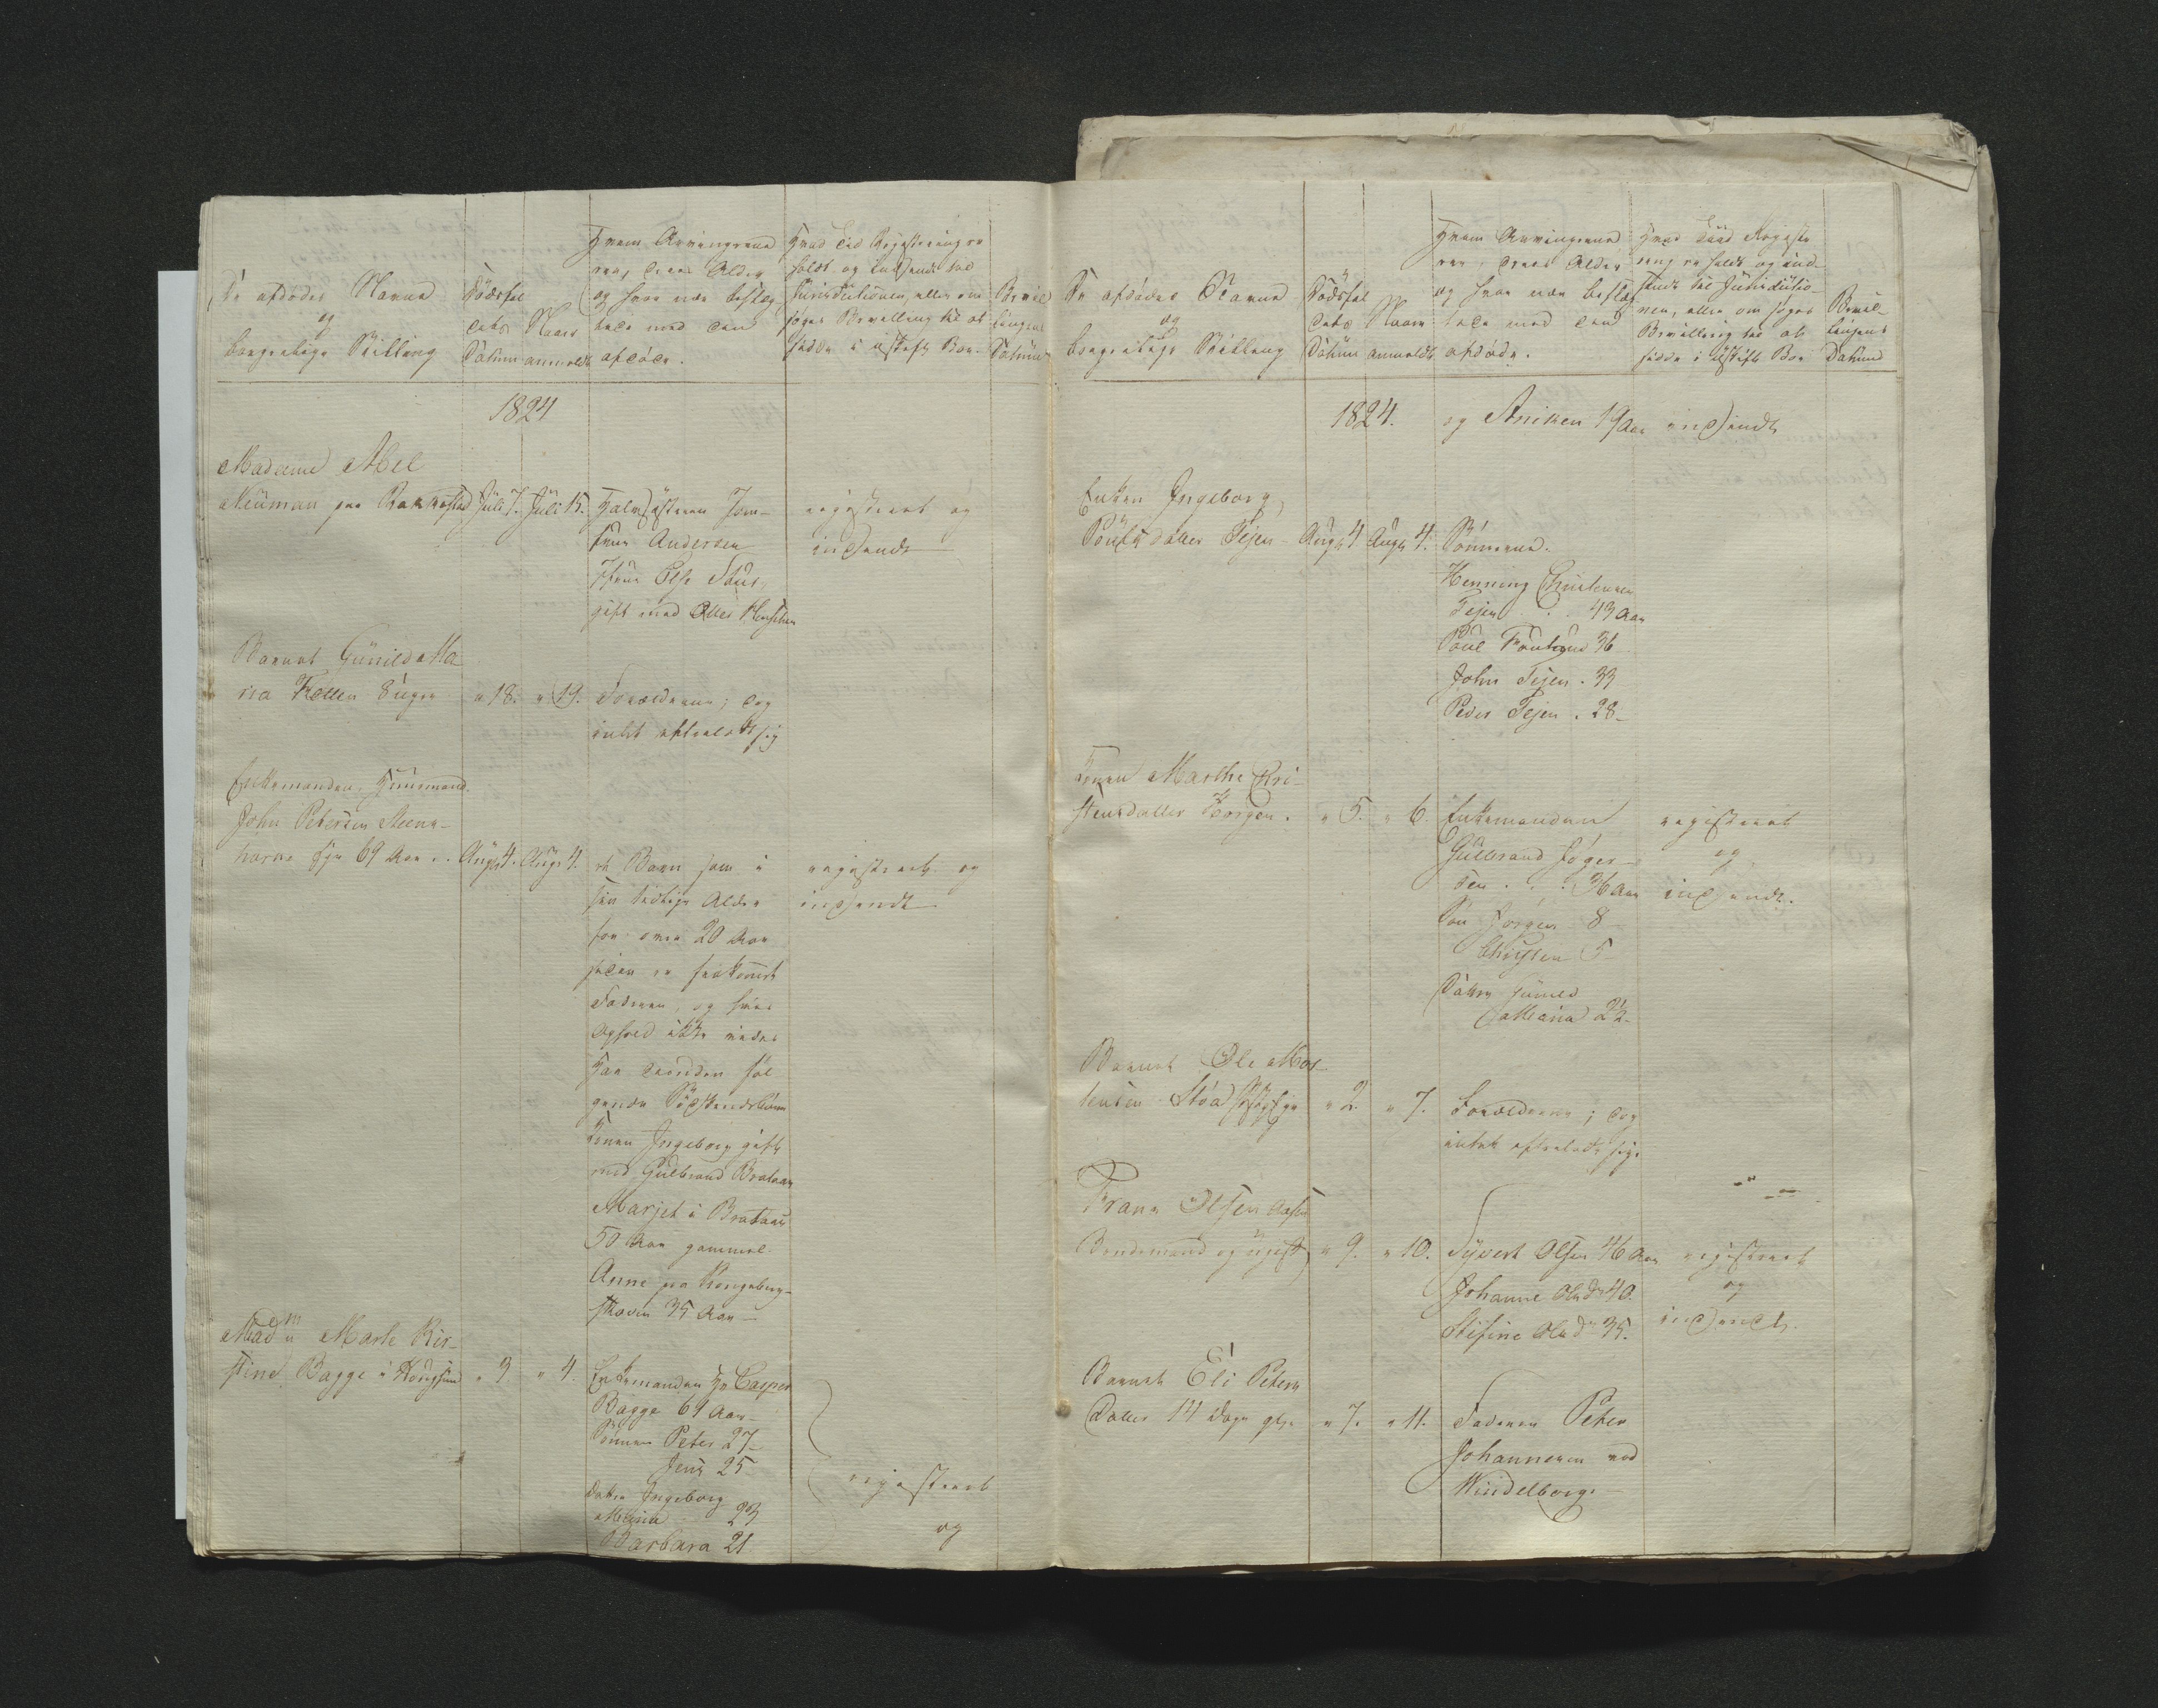 De afdødes Navne
og
borgerlige Stilling
Dødsfal
dets
Datum
Naar
anmeldt
Hvem Arvingerne
ere, deres Alder
og hvor nær beslæg
tede med den
afdøde.
Hvad Tid Registrering er
holdt og indsendt til
Jurisdictionen, eller om
søges Bevilling til at
sidde i uskiftet Boe
Bevil
lingens
Datum
1824
Madame Abel
Neuman paa Juli 7. Juli 15. Halvsøsteren Jom-
fru Andersen
gift med
registreret og
indsendt
Barnet Gunild Ma
ria 8 Uger " 18. " 19. Forældrene; dog
intet efterladt sig
Enkemanden, Huusmand
John Petersen
69 Aar Augt 4. Augt 4. et Barn som i
sin Alder
for over 20 Aar
siden er
Faderen, og hvis
Ophold ikke vides
Har desuden føl
gende Sødskendebørn
Konen Ingeborg gift
med Gulbrand Brataas
Marjet i Brataas
50 Aar gammel
Anne paa Kongsberg-
skoven 35 Aar
registreret og
indsendt
Madm Marte Kir-
stine Bagge i " 3. " 4. Enkemanden Hr Casper
Bagge 61 Aar
Sønnen Peter 27
Jens 25
Datter Ingeborg
Maria 23
Barbara 21
registreret
og
De afdødes Navne
og
borgerlige Stilling
Dødsfal
dets
Datum
Naar
anmeldt
Hvem Arvingerne
ere, deres Alder
og hvor nær beslæg
tede med den
afdøde.
Hvad Tiid Registe
ring er holdt og ind-
sendt til Jurisdictio-
nen, eller om søges
Bevilling til at
sidde i uskiftet Boe
Bevil-
lingens
Datum
1824. og Aniken 19 Aar indsendt
Enken Ingeborg
Poulsdatter Tejen Augt 4 Augt 4. Sønnerne.
Henning Christensen
Tejen 43 Aar
Poul 36
John Tejen . 33
Peder Tejen . 28
Konen Marthe Kri-
stensdatter " 5. " 6. Enkemanden
Gulbrand
sen . . . 36 Aar
Søn Jørgen 8
Christen 5
Datter Gunild
Maria 2½
registreret
og
indsendt.
Barnet Ole Mor
tensen " 2. " 7. Forældrene; dog
intet efterladt sig.
Frans Olsen
Bondemand og ugift " 9. " 10. Syvert Olsen 46 Aar
Johanne Olsdr 40.
Stifine Olsdr 35.
registreret
og
indsendt.
Barnet Eli Peters
Datter 14 Dage gl. " 7. " 11. Faderen Peter
Johannesen ved
Windelborg.